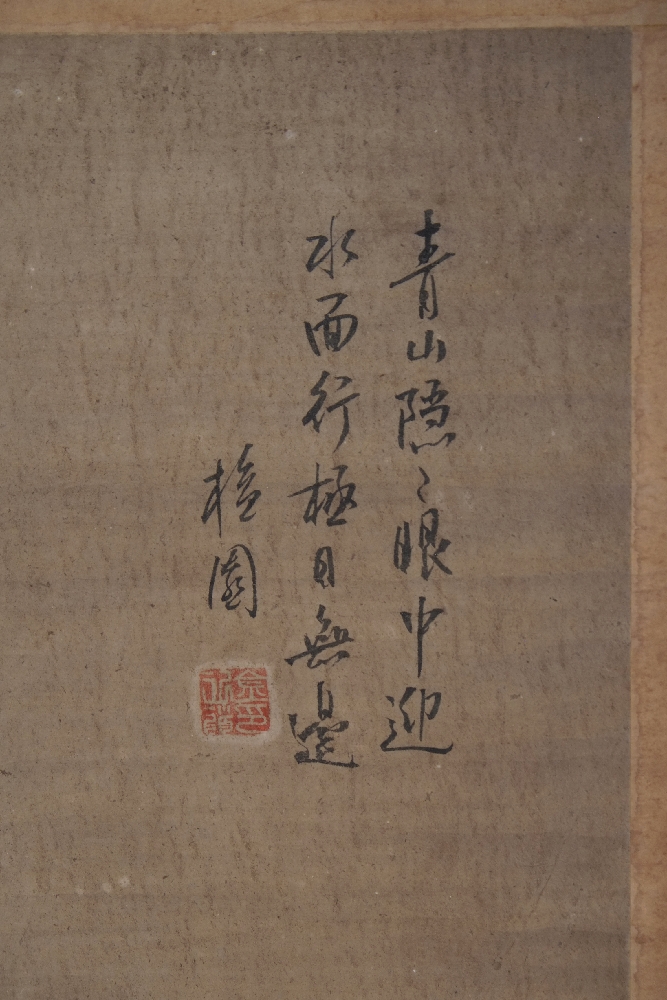 青山隐〻眼中迎
水面行極目無邊
園